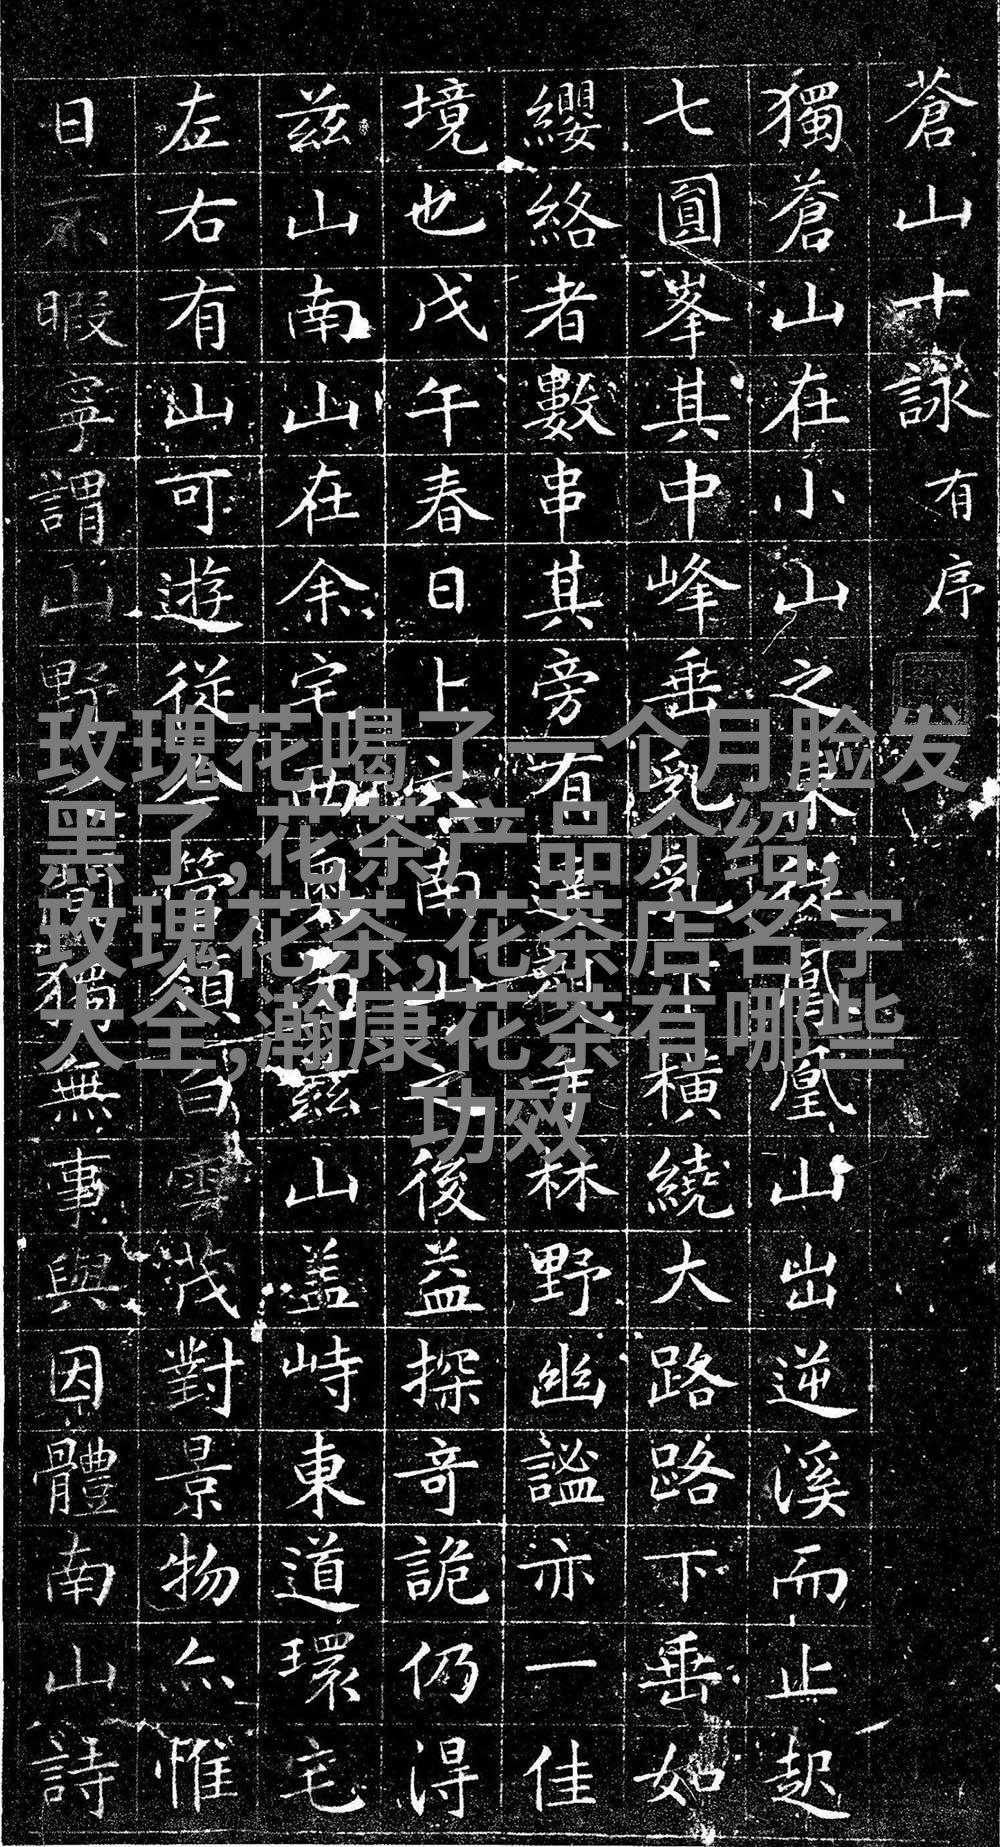 蒼山十詠 有序
獨蒼山在小山之東鳳凰山出逆溪而止起
七圓峯其中峰垂乳乳橫繞大路路下垂如
纓絡者數串其旁有林野幽謐亦一佳
境也戊午春日上南山之後益探奇詭仍得
茲山南山在余宅西茲山盖峙東道環宅
左右有山可遊從今管領白雲茂對景物亦惟
日不暇寧謂山野獨無事與因體南山詩
玫瑰花喝了一个月脸发
黑了,花茶产品介绍,
玫瑰花茶,花茶店名字
大全,瀚康花茶有哪些
功效